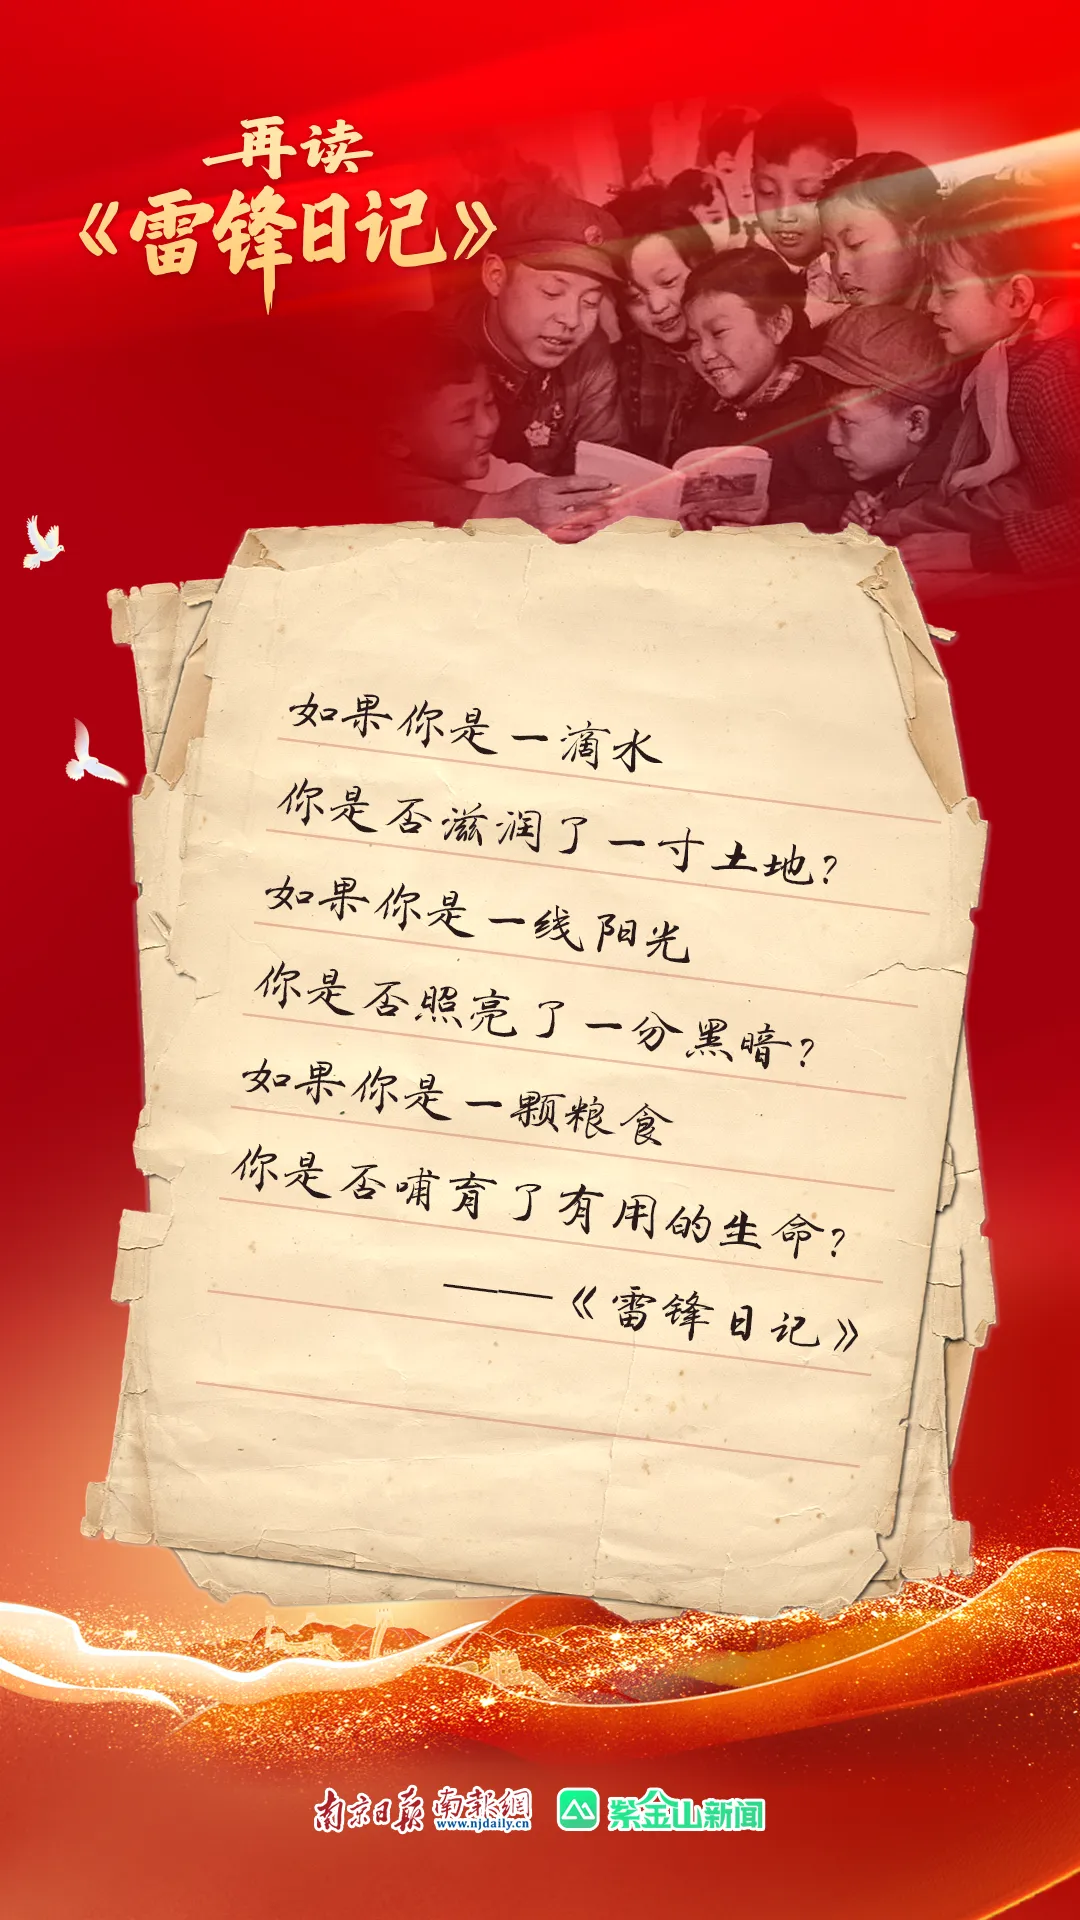 再读
《雷锋日记》
如果你是一滴水
你是否滋润了一寸土地？
如果你是一线阳光
你是否照亮了一分黑暗？
如果你是一颗粮食
你是否哺育了有用的生命？
——《雷锋日记》
南京日报 南報網 www.njdaily.cn 紫金山新闻